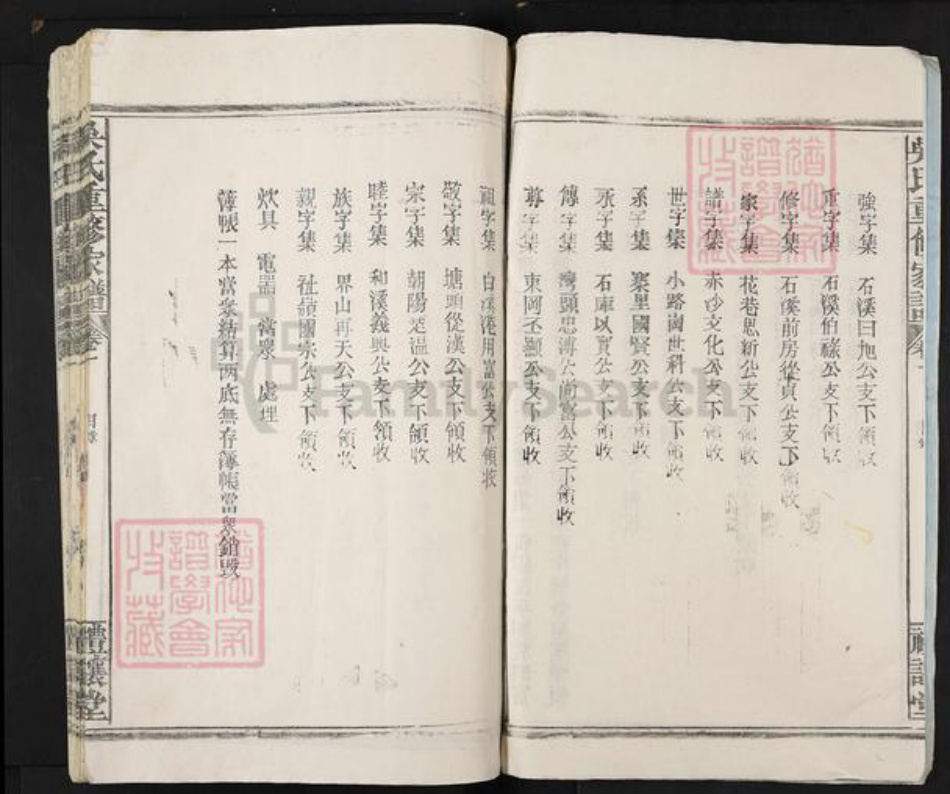 強字集 石溪曰旭公支下領收
重字集 石溪伯祿公支下領收
修字集 石溪前房從貞公支下領收
家字集 花巷思新公支下領收
譜字集 赤沙文化公支下領收
世字集 小路崗世科公支下領收
系字集 寨里國賢公支下領收
承字集 石庫以寬公支下領收
傳字集 灣頭忠溥公尚富公支下領收
尊字集 東岡丕顯公支下領收
祖字集 白溪港用富公支下領收
敬字集 塘頭從漢公支下領收
宗字集 朝陽公支下領收
睦字集 和溪義興公支下領收
族字集 界山再天公支下領收
親字集 祉嶺國宗公支下領收
炊具 電器 當眾 處理
簿帳一本當眾結算兩底無存簿帳當眾銷毀
吳氏重修家譜 卷一
目錄
禮讓堂
FamilySearch